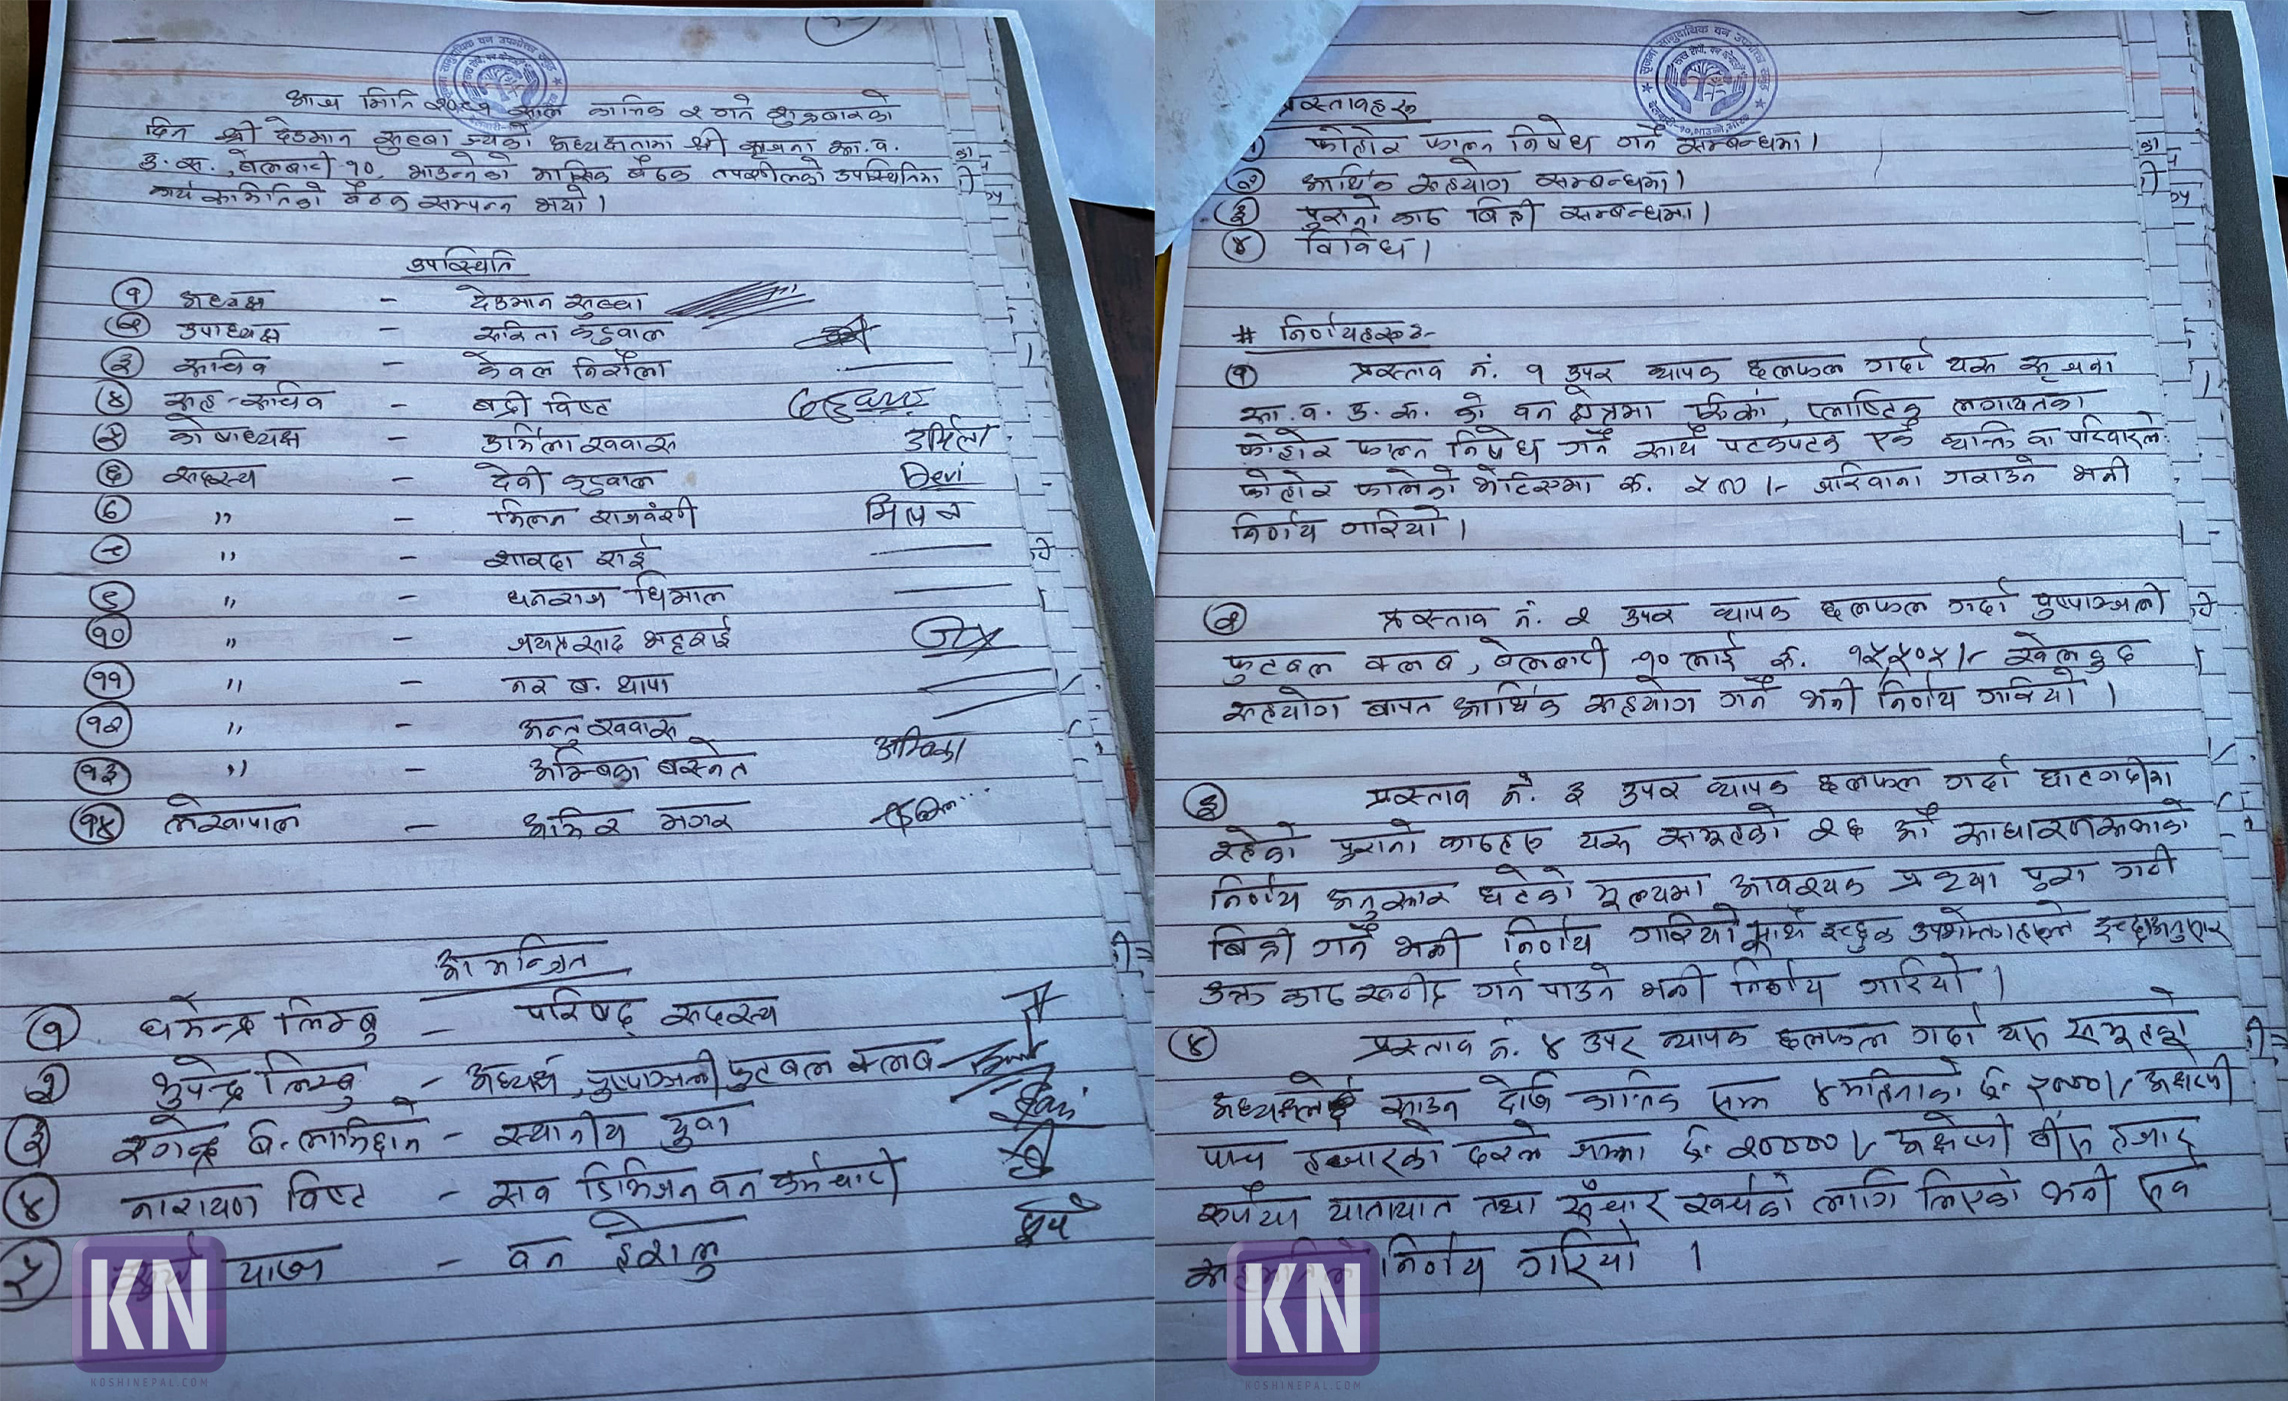 आज मिति २०८१ साल कार्तिक २ गते शुक्रबारको
दिन श्री देउमान सुब्बा ज्यूको अध्यक्षतामा श्री सृजना सा.व.
उ.स., बेलबारी १०, भाउन्नेको मासिक बैठक तपशीलको उपस्थितिमा
कार्य समितिको बैठक सम्पन्न भयो।
उपस्थिति
१ अध्यक्ष - देउमान सुब्बा
२ उपाध्यक्ष - सरिता कटुवाल
३ सचिव - केवल निरौला
४ सह-सचिव - बद्री विष्ट
५ कोषाध्यक्ष - उर्मिला खवास उर्मिला
६ सदस्य - देवी कटुवाल Devi
७ " - मिलन राजवंशी मिलन
८ " - शारदा राई
९ " - धनराज धिमाल
१० " - जयप्रसाद भट्टराई
११ " - नर ब. थापा
१२ " - अन्तु खवास
१३ " - अम्बिका बस्नेत अम्बिका
१४ लेखापाल - अमिर मगर
आमन्त्रित
१ धर्मेन्द्र लिम्बु - परिषद् सदस्य
२ भुपेन्द्र लिम्बु - अध्यक्ष, पुष्पाञ्जली फुटबल क्लब
३ ब. लामिछाने - स्थानीय युवा
४ नारायण विष्ट - सव डिभिजन वन कर्मचारी
५ - वन हेरालु
KN
KOSHINEPAL.COM
सृजना सामुदायिक वन उपभोक्ता समूह
बेलबारी-१०, भाउन्ने, मोरङ
प्रस्तावहरु
१ फोहोर फाल्न निषेध गर्ने सम्बन्धमा।
२ आर्थिक सहयोग सम्बन्धमा।
३ पुरानो काठ बिक्री सम्बन्धमा।
४ विविध।
# निर्णयहरु:-
१ प्रस्ताव नं. १ उपर व्यापक छलफल गर्दा यस सृजना
सा.व.उ.स. को वन क्षेत्रमा प्लाष्टिक लगायतका
फोहोर फाल्न निषेध गर्ने साथै पटकपटक एकै व्यक्ति वा परिवारले
फोहोर फालेको भेटिएमा रु. ५००।- जरिवाना गराउने भनी
निर्णय गरियो।
२ प्रस्ताव नं. २ उपर व्यापक छलफल गर्दा पुष्पाञ्जली
फुटबल क्लब, बेलबारी -१० लाई रु. १५,५०५।- खेलकुद
सहयोग बापत आर्थिक सहयोग गर्ने भनी निर्णय गरियो।
३ प्रस्ताव नं. ३ उपर व्यापक छलफल गर्दा घाटगद्दीमा
रहेको पुरानो काठहरु यस समूहको २६ औं साधारणसभाको
निर्णय अनुसार घटेको मूल्यमा आवश्यक प्रक्रया पुरा गरी
बिक्री गर्ने भनी निर्णय गरियो साथै इच्छुक उपभोक्ताहरुले इच्छाअनुसार
उक्त काठ खरीद गर्न पाउने भनी निर्णय गरियो।
४ प्रस्ताव नं. ४ उपर व्यापक छलफल गर्दा यस समूहको
अध्यक्षले साउन देखि कार्तिक सम्म ४ महिनाको रु. ५०००।- अक्षरुपी
पाच हजारको दरले जम्मा रु. २००००।- अक्षरुपी बीस हजार
रुपैया यातायात तथा संचार खर्चको लागि लिएको भनी सर्व
सहमतिले निर्णय गरियो।
KN
KOSHINEPAL.COM